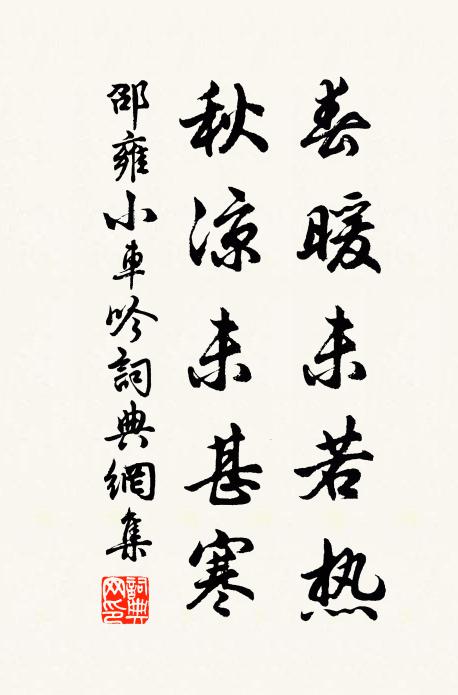 春暖未若热
秋凉未甚寒
邵雍小車吟詞典網集
詞典網印